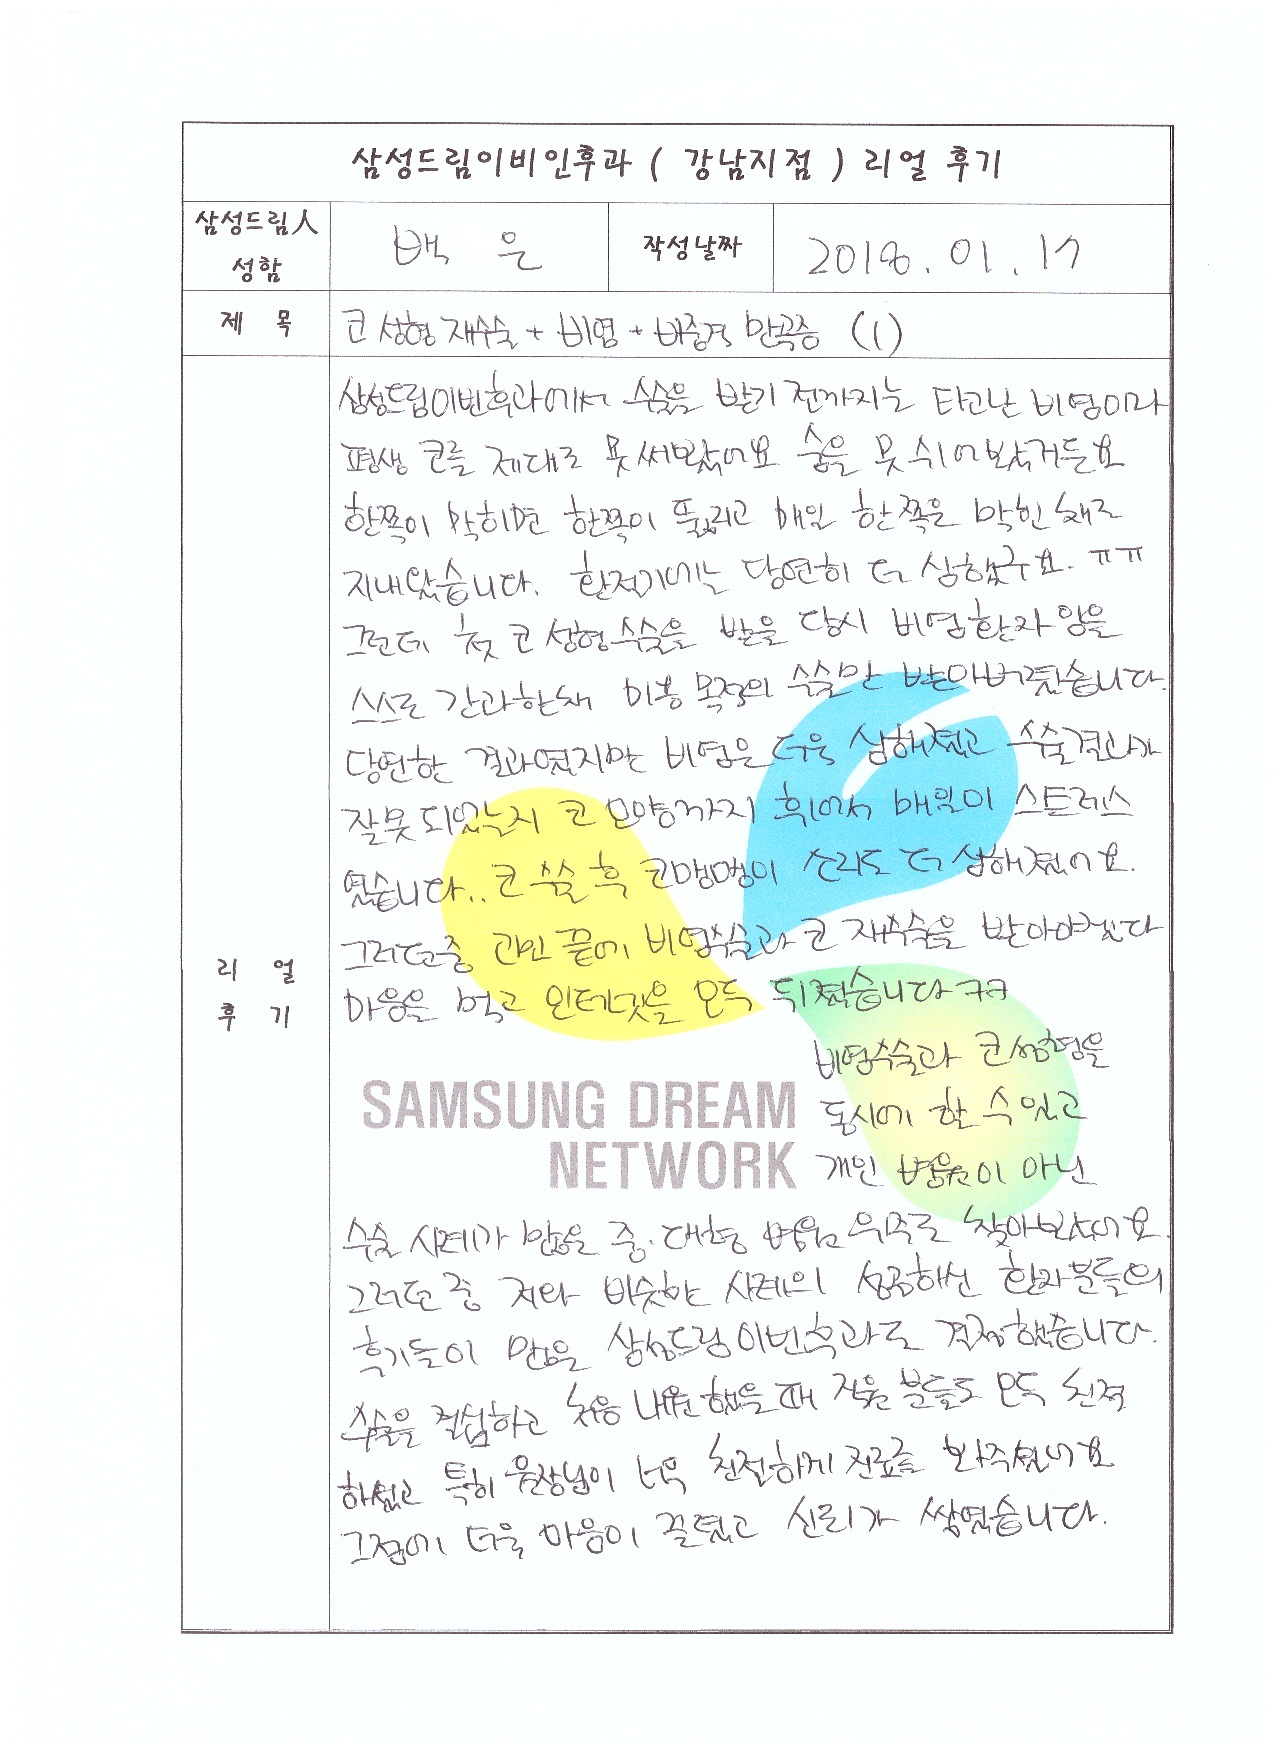 삼성드림이비인후과 ( 강남지점 ) 리얼 후기
삼성드림人 성함
백 은
작성날짜
2018. 01. 17
제 목
코 성형 재수술 + 비염 + 비중격 만곡증 (1)
리 얼 후 기
삼성드림이빈후과에서 수술을 받기 전까지는 타고난 비염이라
평생 코를 제대로 못써봤어요 숨을 못 쉬어봤거든요
한쪽이 막히면 한쪽이 뚫리고 매일 한쪽은 막힌 채로
지내왔습니다. 환절기에는 당연히 더 심했구요. ㅠㅠ
그런데 첫 코 성형수술을 받을 당시 비염환자 임을
스스로 간과한채 미용 목적의 수술만 받아버렸습니다.
당연한 결과였지만 비염은 더욱 심해졌고 수술결과가
잘못 되었는지 코 모양까지 휘어서 매일이 스트레스
였습니다.. 코 수술 후 코맹맹이 소리도 더 심해졌어요.
그러던중 고민 끝에 비염수술과 코 재수술을 받아야겠다
마음을 먹고 인터넷을 모두 뒤졌습니다 ㅋㅋ
비염수술과 코성형을
동시에 할 수 있고
개인 병원이 아닌
SAMSUNG DREAM
NETWORK
수술 사례가 많은 중.대형 병원 위주로 찾아봤어요.
그러던 중 저와 비슷한 사례의 성공하신 환자분들의
후기들이 많은 삼성드림이빈후과로 결정했습니다.
수술을 결심하고 처음 내원했을 때 직원 분들도 모두 친절
하셨고 특히 원장님이 너무 친절하게 진료를 봐주셨어요
그점에 더욱 마음이 끌렸고 신뢰가 쌓였습니다.